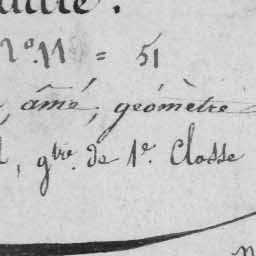 N°. 11 = 51
, âmé, géomètre
, gtre. de 1e. Classe